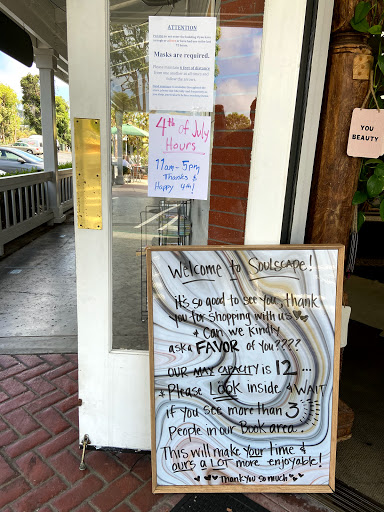 ATTENTION
Masks are required.
4th of July
Hours
11am - 5pm
Thanks &
Happy 4th!
YOU
BEAUTY
Welcome to Soulscape!
it's so good to see you, thank
you for shopping with us
& Can we kindly
ask a FAVOR of you????
our max capacity is 12...
& Please Look inside & WAIT
if you see more than 3
People in our Book area.
This will make your time &
ours a LOT more enjoyable!
Thank you so much